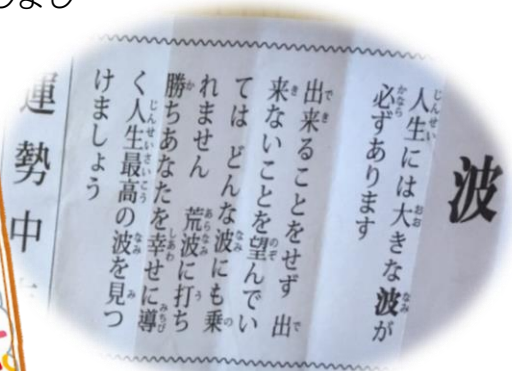 波
人生には大きな波が
必ずあります
出来ることをせず 出
来ないことを望んでい
ては どんな波にも乗
れません 荒波に打ち
勝ちあなたを幸せに導
く人生最高の波を見つ
けましょう
運勢中